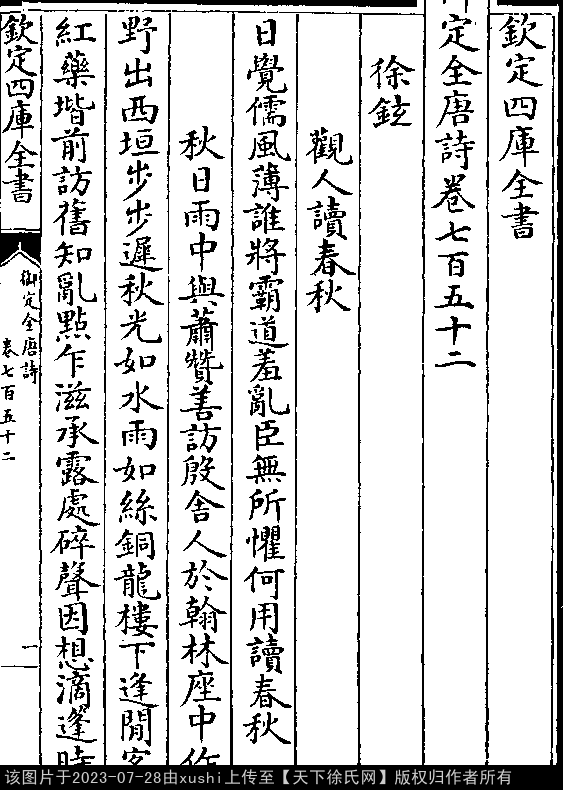 欽定四庫全書
定全唐詩卷七百五十二
徐鉉
觀人讀春秋
日覺儒風薄誰將霸道羞亂臣無所懼何用讀春秋
秋日雨中與蕭贊善訪殷舍人於翰林座中作
野出西垣步步遲秋光如水雨如絲銅龍樓下逢閒客
紅藥堦前訪舊知亂點乍滋承露處碎聲因想滴逢時
欽定四庫全書
御定全唐詩
卷七百五十二
一
该图片于2023-07-28由xushi上传至【天下徐氏网】版权归作者所有